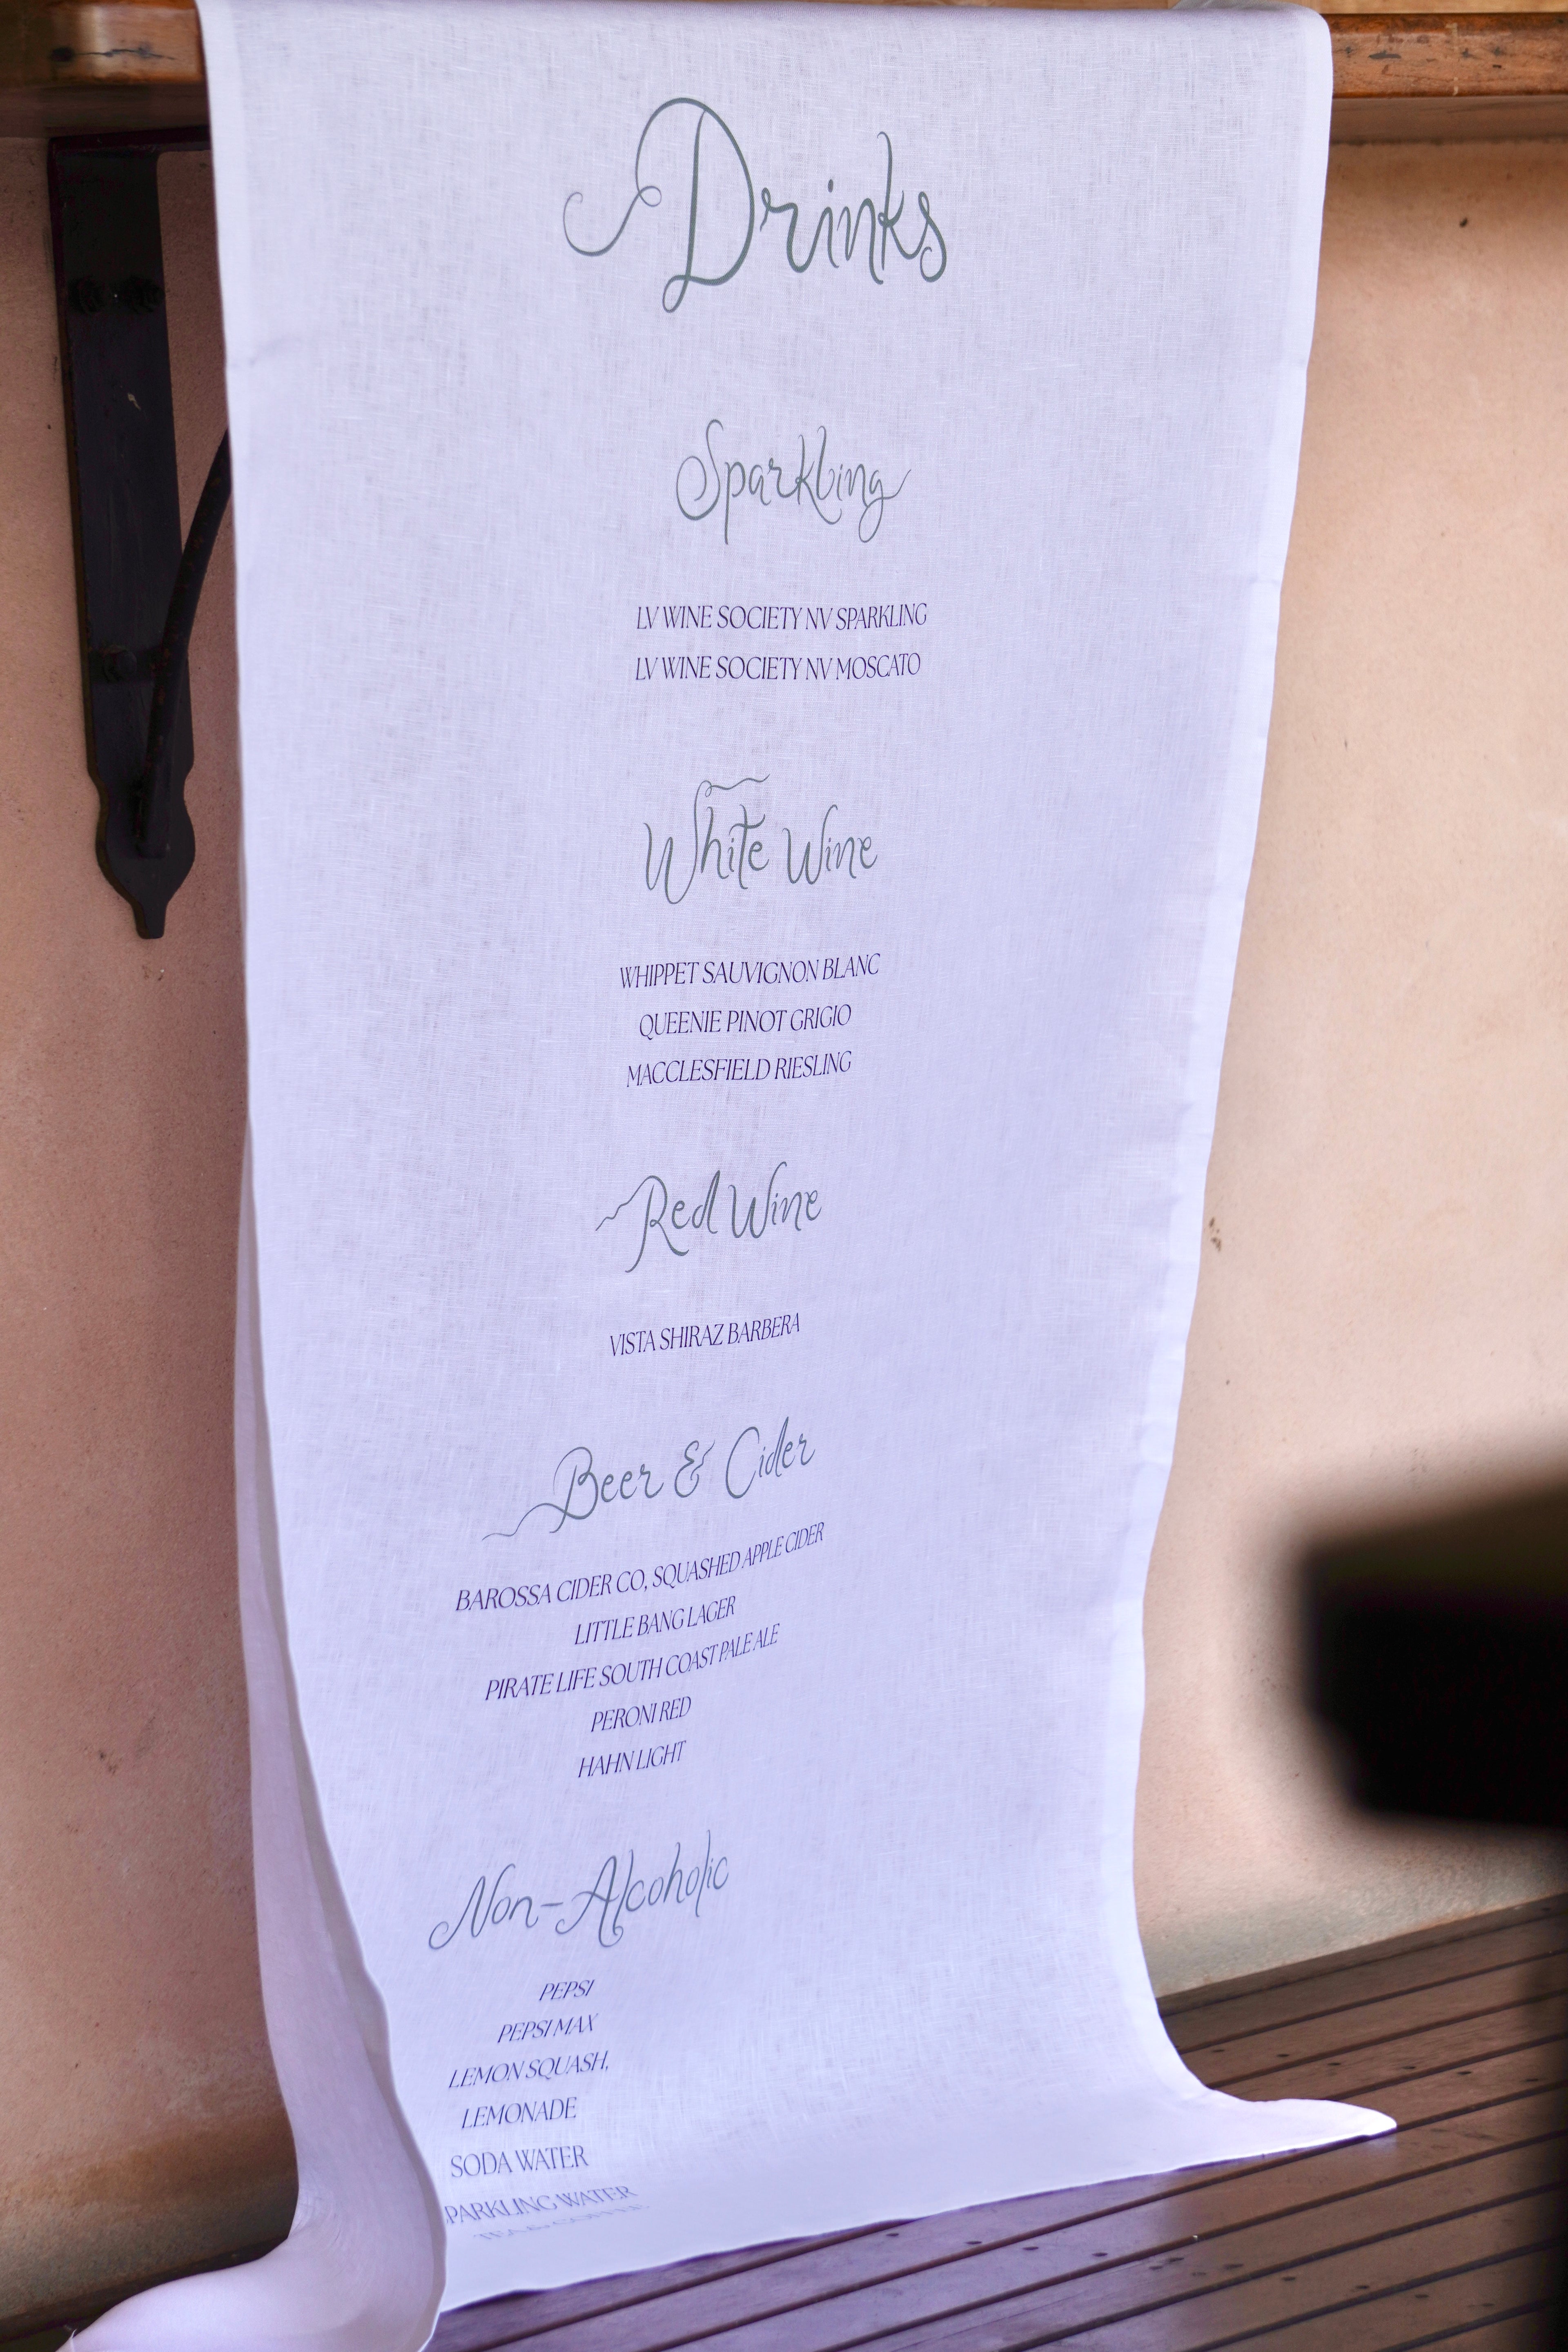 Drinks
Sparkling
LV WINE SOCIETY NV SPARKLING
LV WINE SOCIETY NV MOSCATO
White Wine
WHIPPET SAUVIGNON BLANC
QUEENIE PINOT GRIGIO
MACCLESFIELD RIESLING
Red Wine
VISTA SHIRAZ BARBERA
Beer & Cider
BAROSSA CIDER CO, SQUASHED APPLE CIDER
LITTLE BANG LAGER
PIRATE LIFE SOUTH COAST PALE ALE
PERONI RED
HAHN LIGHT
Non-Alcoholic
PEPSI
PEPSI MAX
LEMON SQUASH,
LEMONADE
SODA WATER
PARKLING WATER